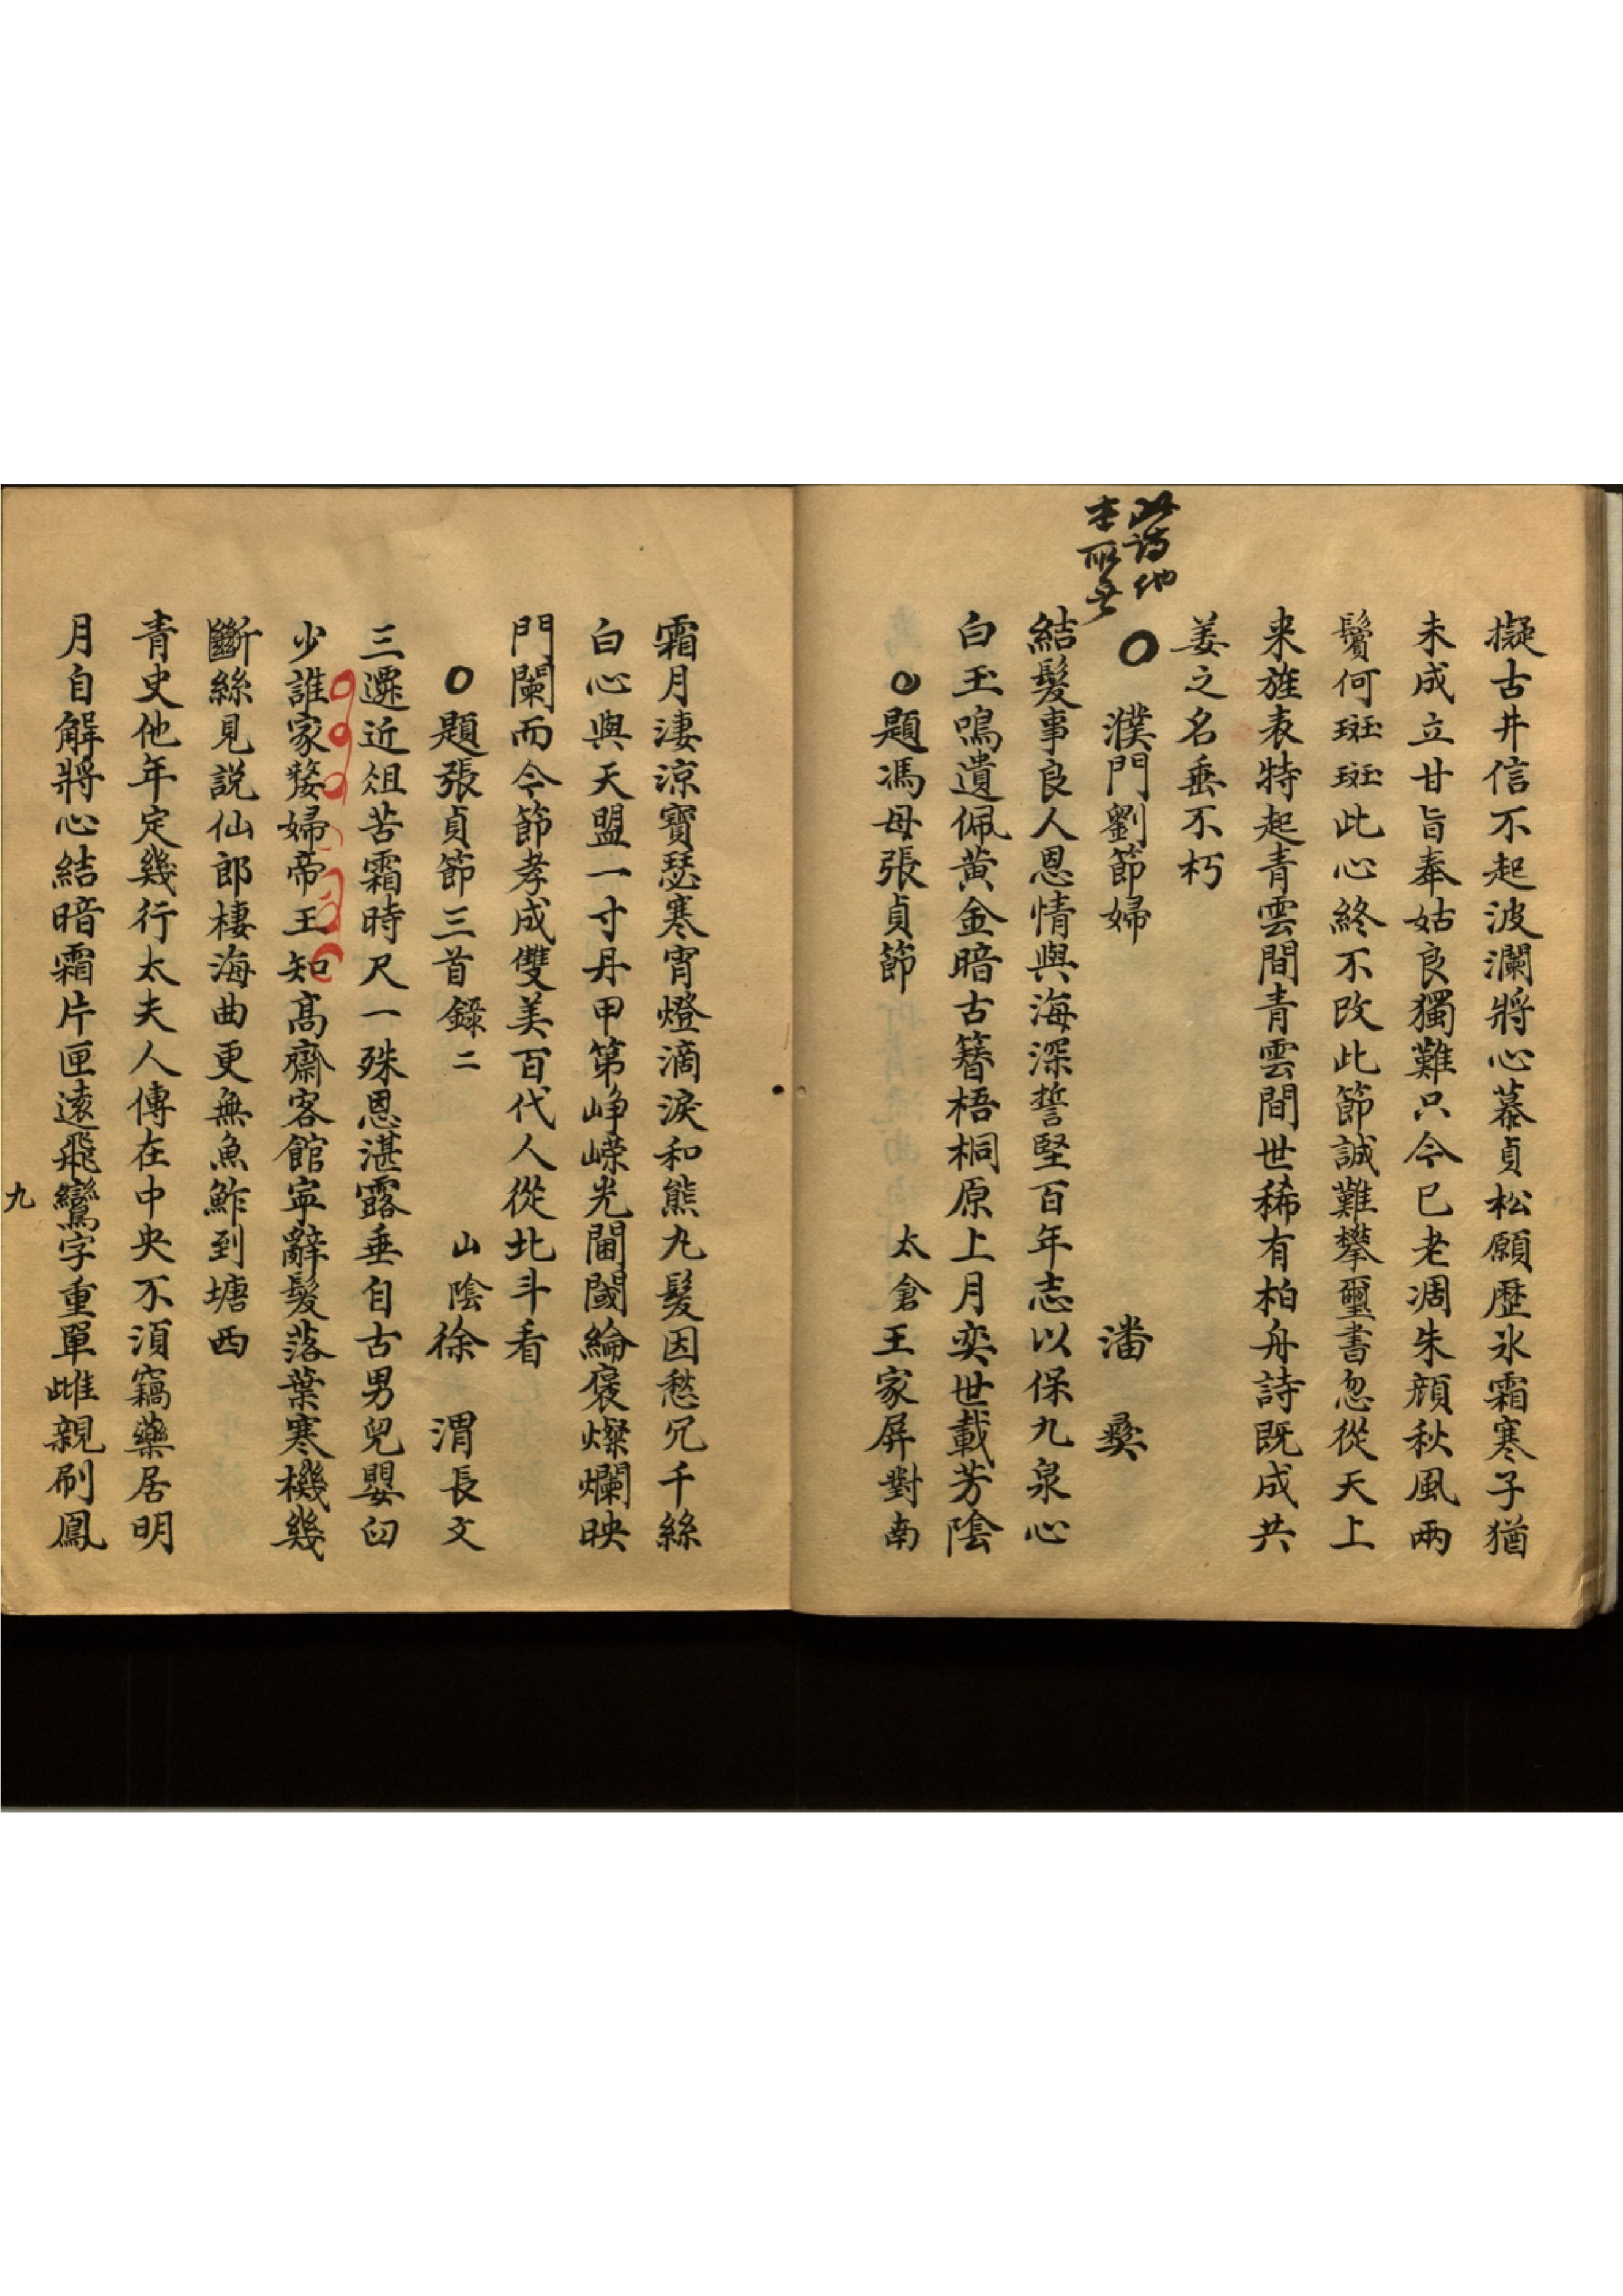 擬古井信不起波瀾將心慕貞松願歷氷霜寒子猶
未成立甘旨奉姑良獨難只今已老凋朱顔秋風兩
鬢何斑斑此心終不改此節誠難攀璽書忽從天上
来旌表特起青雲間青雲間世稀有柏舟詩既成共
姜之名垂不朽
此詩他
本所無
○ 濮門劉節婦 潘 彞
結髮事良人恩情與海深誓堅百年志以保九泉心
白玉鳴遺佩黄金暗古簪梧桐原上月奕世載芳陰
○題馮母張貞節 太倉王家屏對南
霜月淒涼寶瑟寒宵燈滴淚和熊丸髮因愁冗千絲
白心與天盟一寸丹甲第峥嶸光閫閾綸褒燦爛映
門闌而今節孝成雙美百代人從北斗看
○題張貞節三首錄二 山陰徐 渭長文
三遷近俎苦霜時尺一殊恩湛露垂自古男兒嬰臼
少誰家嫠婦帝王知高齋客館寕辭髮落葉寒機幾
斷絲見説仙郎棲海曲更無魚鮓到塘西
青史他年定幾行太夫人傳在中央不湏竊藥居明
月自解將心結暗霜片匣遠飛鸞字重單雌親刷鳳
九